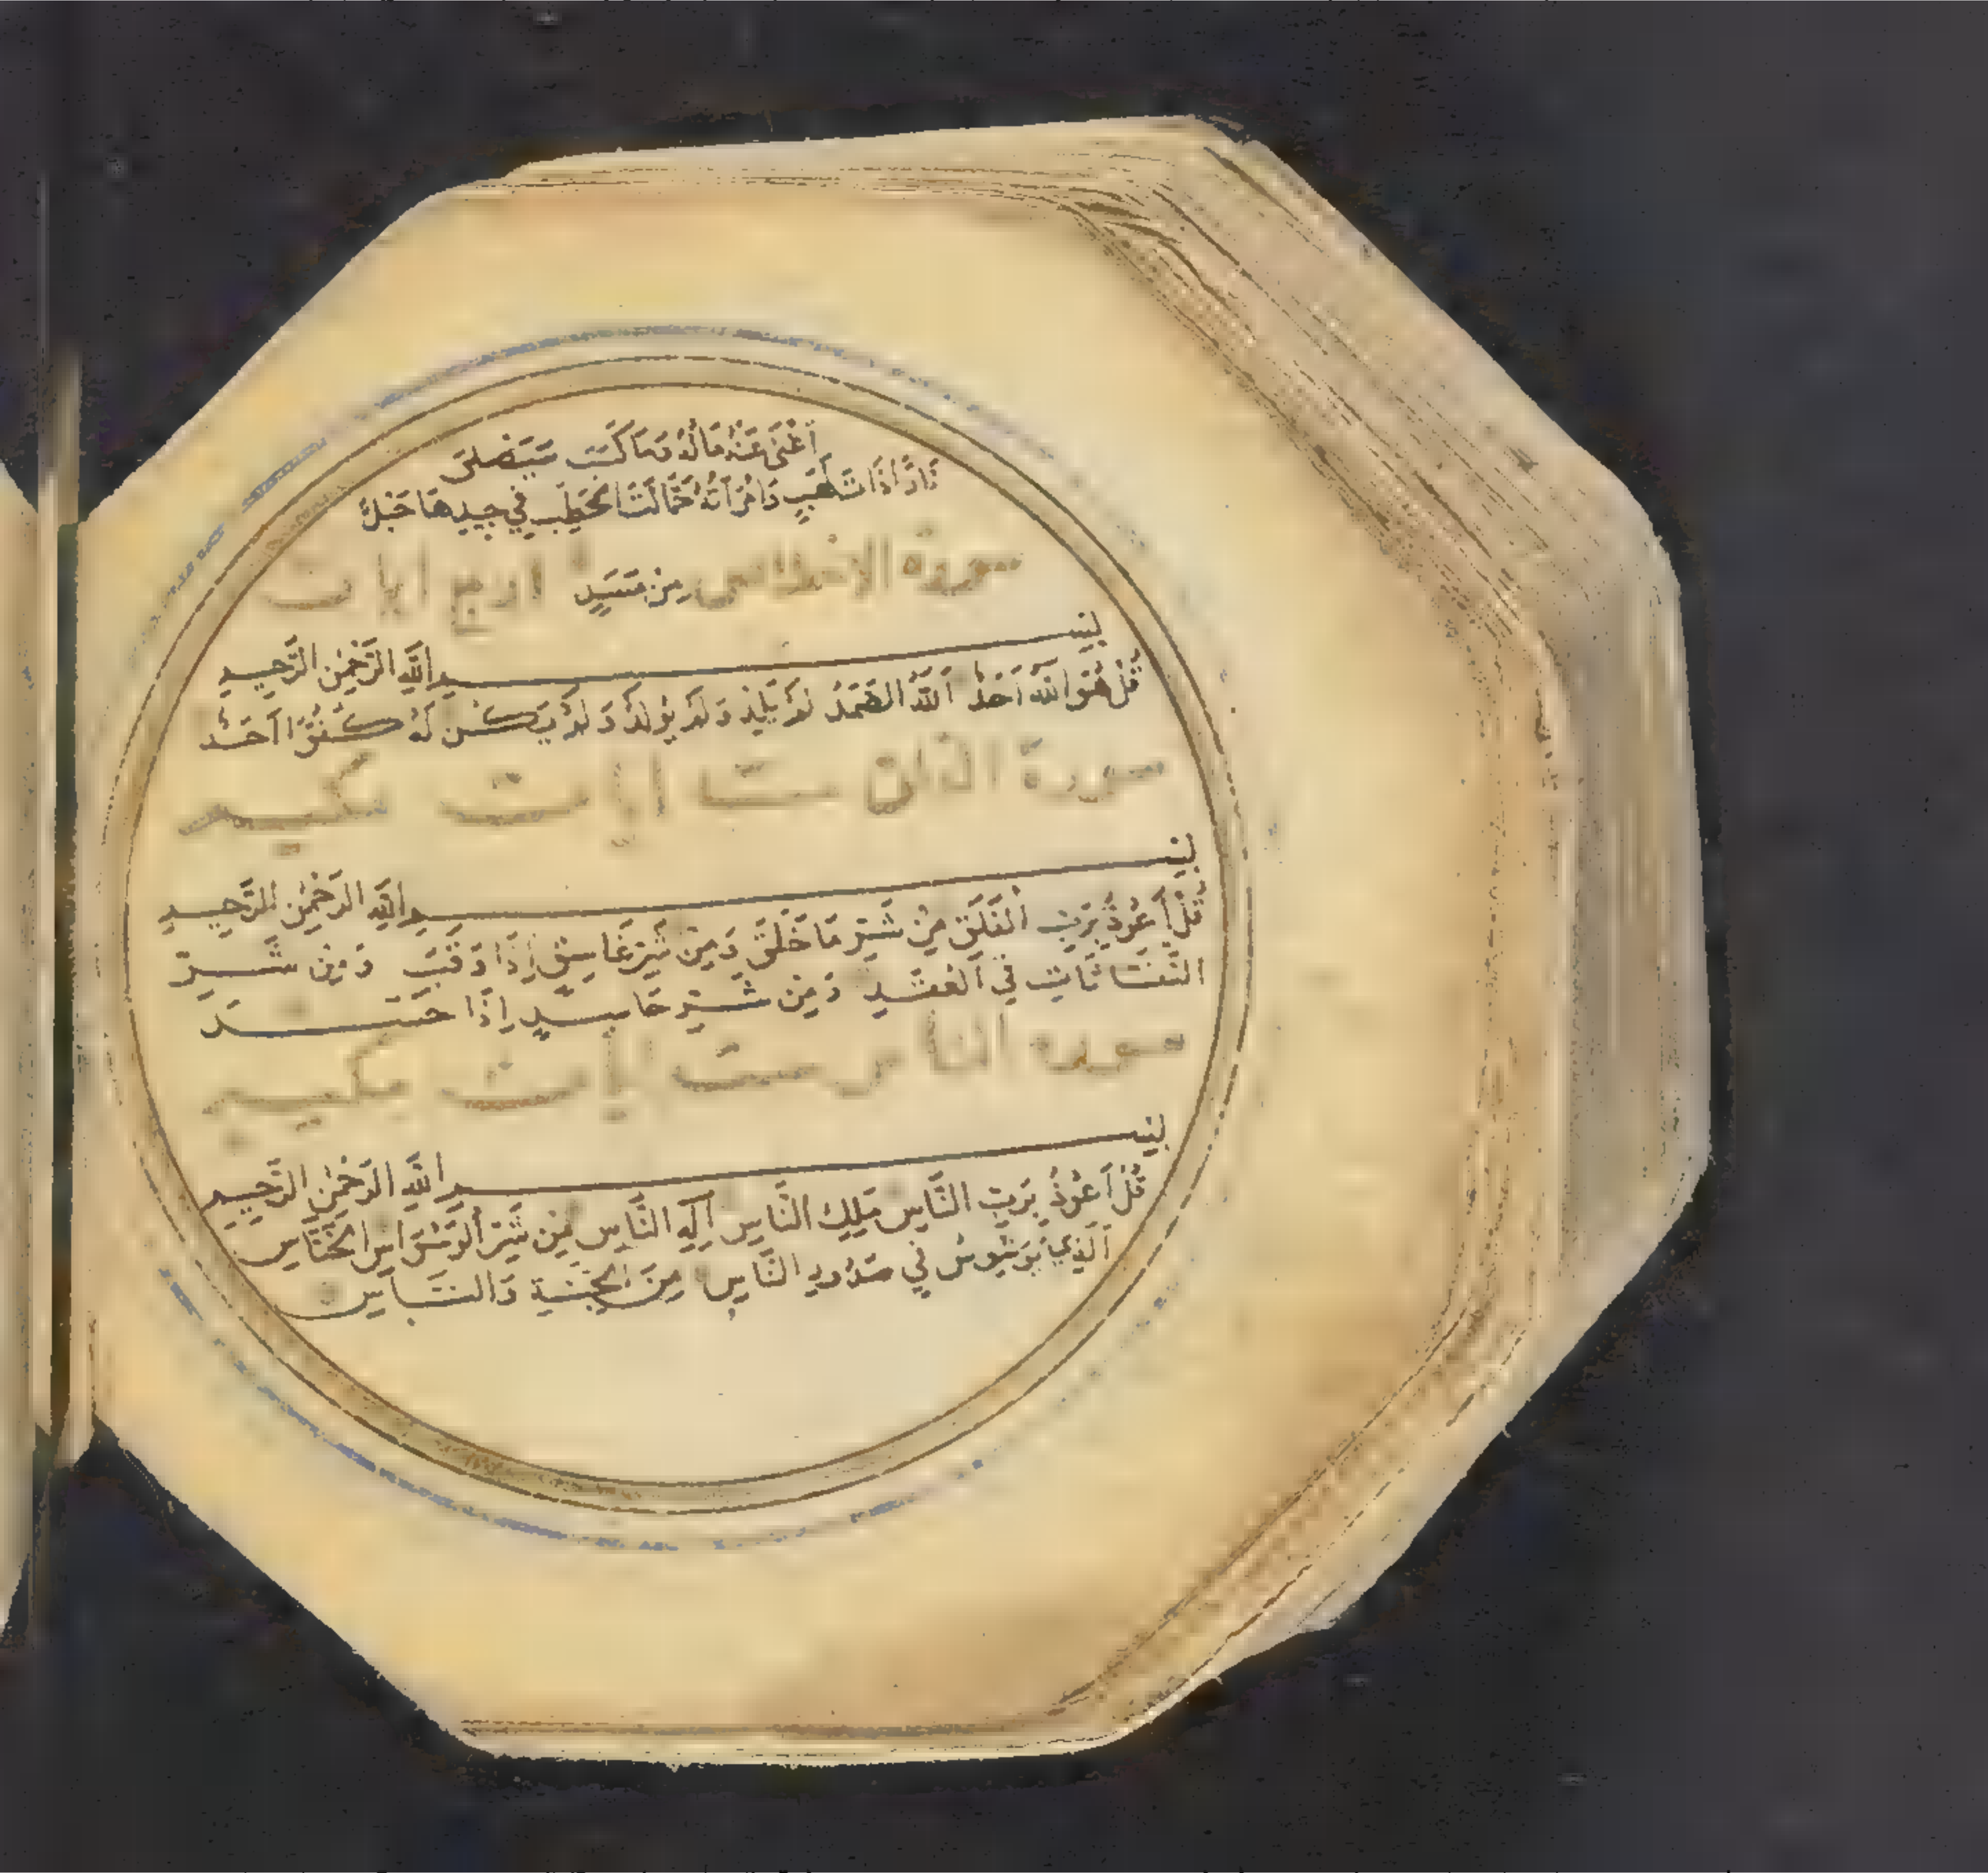 أَغْنَى عَنْهُ مَالُهُ وَمَا كَسَبَ سَيَصْلَى
نَارًا ذَاتَ لَهَبٍ وَامْرَأَتُهُ حَمَّالَتَ الْحَطَبِ فِي جِيدِهَا حَبْلٌ
مِنْ مَسَدٍ
سورة الاخلاص اربع ايات
بِسْمِ اللَّهِ الرَّحْمَنِ الرَّحِيمِ
قُلْ هُوَ اللَّهُ أَحَدٌ اَللَّهُ الصَّمَدُ لَمْ يَلِدْ وَلَمْ يُولَدْ وَلَمْ يَكُنْ لَهُ كُفُوًا أَحَدٌ
سورة الفلق ست ايات مكيه
بِسْمِ اللَّهِ الرَّحْمَنِ الرَّحِيمِ
قُلْ أَعُوذُ بِرَبِّ الْفَلَقِ مِنْ شَرِّ مَا خَلَقَ وَمِنْ شَرِّ غَاسِقٍ إِذَا وَقَبَ وَمِنْ شَرِّ
النَّفَّاثَاتِ فِي الْعُقَدِ وَمِنْ شَرِّ حَاسِدٍ إِذَا حَسَدَ
سورة الناس ست ايات مكيه
بِسْمِ اللَّهِ الرَّحْمَنِ الرَّحِيمِ
قُلْ أَعُوذُ بِرَبِّ النَّاسِ مَلِكِ النَّاسِ إِلَهِ النَّاسِ مِنْ شَرِّ الْوَسْوَاسِ الْخَنَّاسِ
اَلَّذِي يُوَسْوِسُ فِي صُدُورِ النَّاسِ مِنَ الْجِنَّةِ وَالنَّاسِ